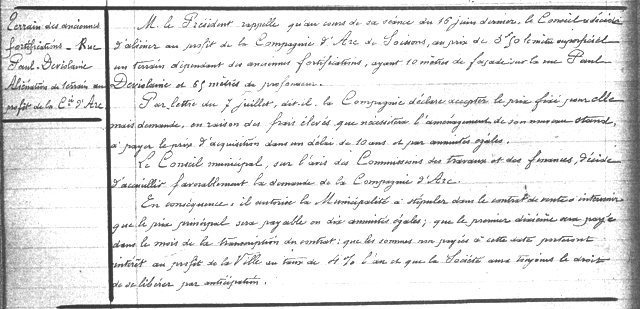 Terrain des anciennes
fortifications - Rue
Paul-Deviolaine
Aliénation de terrain au
profit de la Cie d'Arc
M. le Président rappelle qu'au cours de sa séance du 15 juin dernier, le Conseil a décidé
d'aliéner au profit de la Compagnie d'Arc de Soissons, au prix de 5f50 le mètre superficiel
un terrain dépendant des anciennes fortifications, ayant 10 mètres de façade sur la rue Paul
Deviolaine et 65 mètres de profondeur.
Par lettre du 7 juillet, dit-il, la Compagnie déclare accepter le prix fixé pour elle
mais demande, en raison des frais élevés que nécessitera l'aménagement de son nouveau stand,
à payer le prix d'acquisition dans un délai de 10 ans et par annuités égales.
Le Conseil municipal, sur l'avis des Commissions des travaux et des finances, décide
d'accueillir favorablement la demande de la Compagnie d'Arc.
En conséquence : il autorise la Municipalité à stipuler dans le contrat de vente à intervenir
que le prix principal sera payable en dix annuités égales ; que le premier dixième sera payé
dans le mois de la transcription du contrat ; que les sommes non payées à cette date porteront
intérêt au profit de la Ville au taux de 4% l'an et que la Société aura toujours le droit
de se libérer par anticipation.